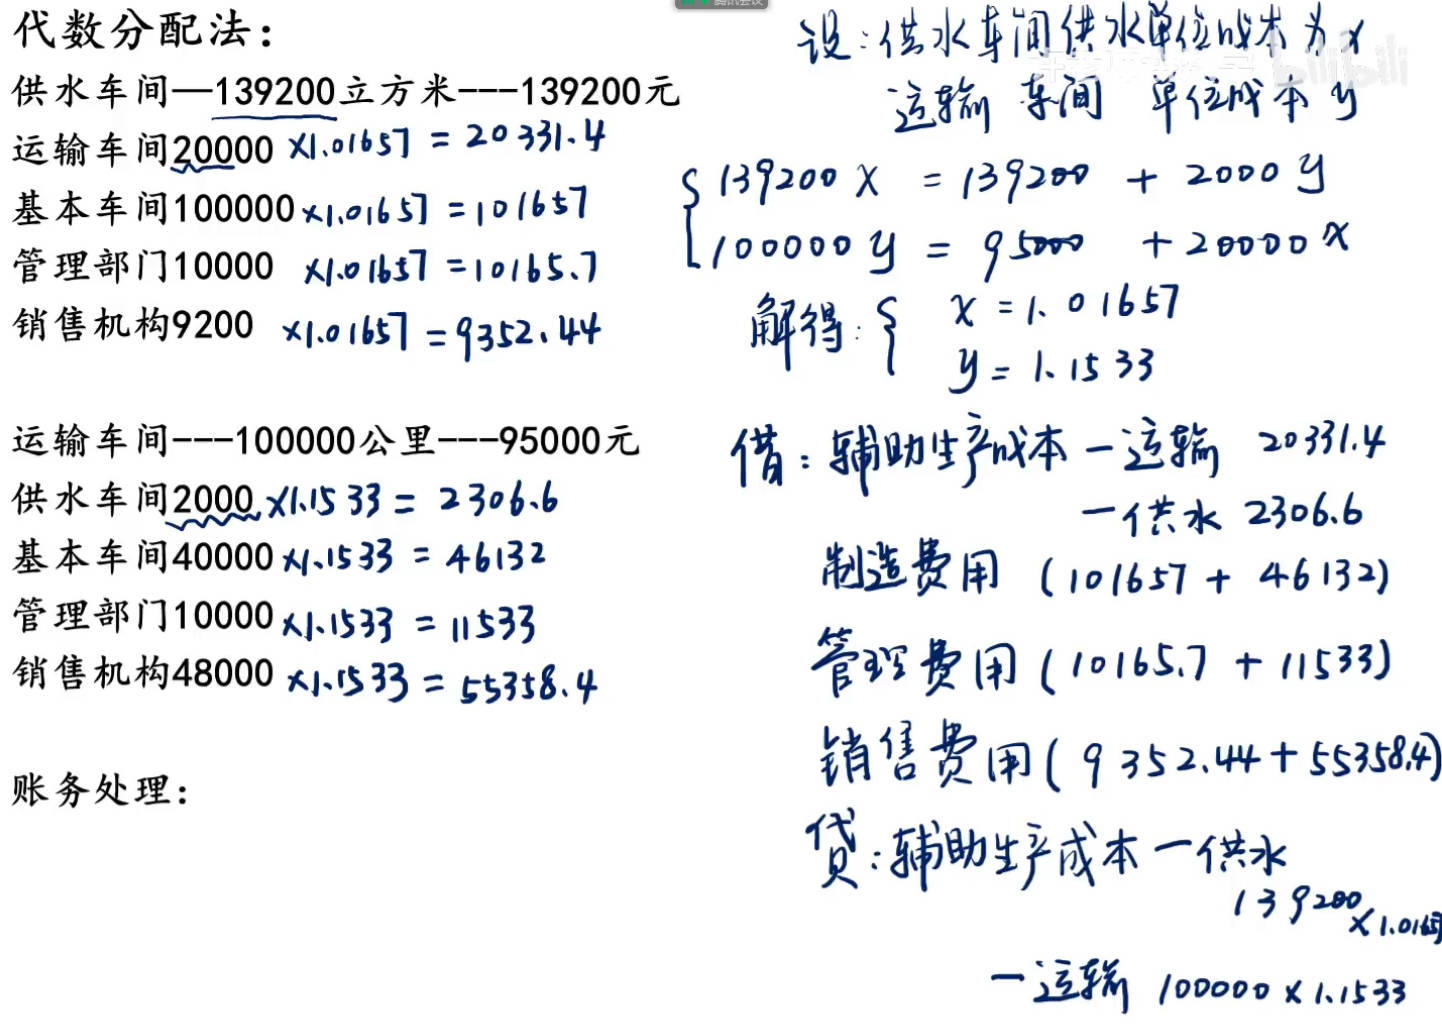 代数分配法：
供水车间—139200立方米---139200元
运输车间20000 ×1.01657 = 20331.4
基本车间100000 ×1.01657 = 101657
管理部门10000 ×1.01657 = 10165.7
销售机构9200 ×1.01657 = 9352.44
运输车间---100000公里---95000元
供水车间2000 ×1.1533 = 2306.6
基本车间40000 ×1.1533 = 46132
管理部门10000 ×1.1533 = 11533
销售机构48000 ×1.1533 = 55358.4
账务处理：
设：供水车间供水单位成本为x
运输 车间 单位成本 y
139200 x = 139200 + 2000 y
100000 y = 95000 + 20000 x
解得： x = 1.01657
y = 1.1533
借：辅助生产成本 — 运输 20331.4
— 供水 2306.6
制造费用 (101657 + 46132)
管理费用 (10165.7 + 11533)
销售费用 (9352.44 + 55358.4)
贷：辅助生产成本 — 供水
139200 × 1.01657
— 运输 100000 × 1.1533
bilibili
腾讯会议